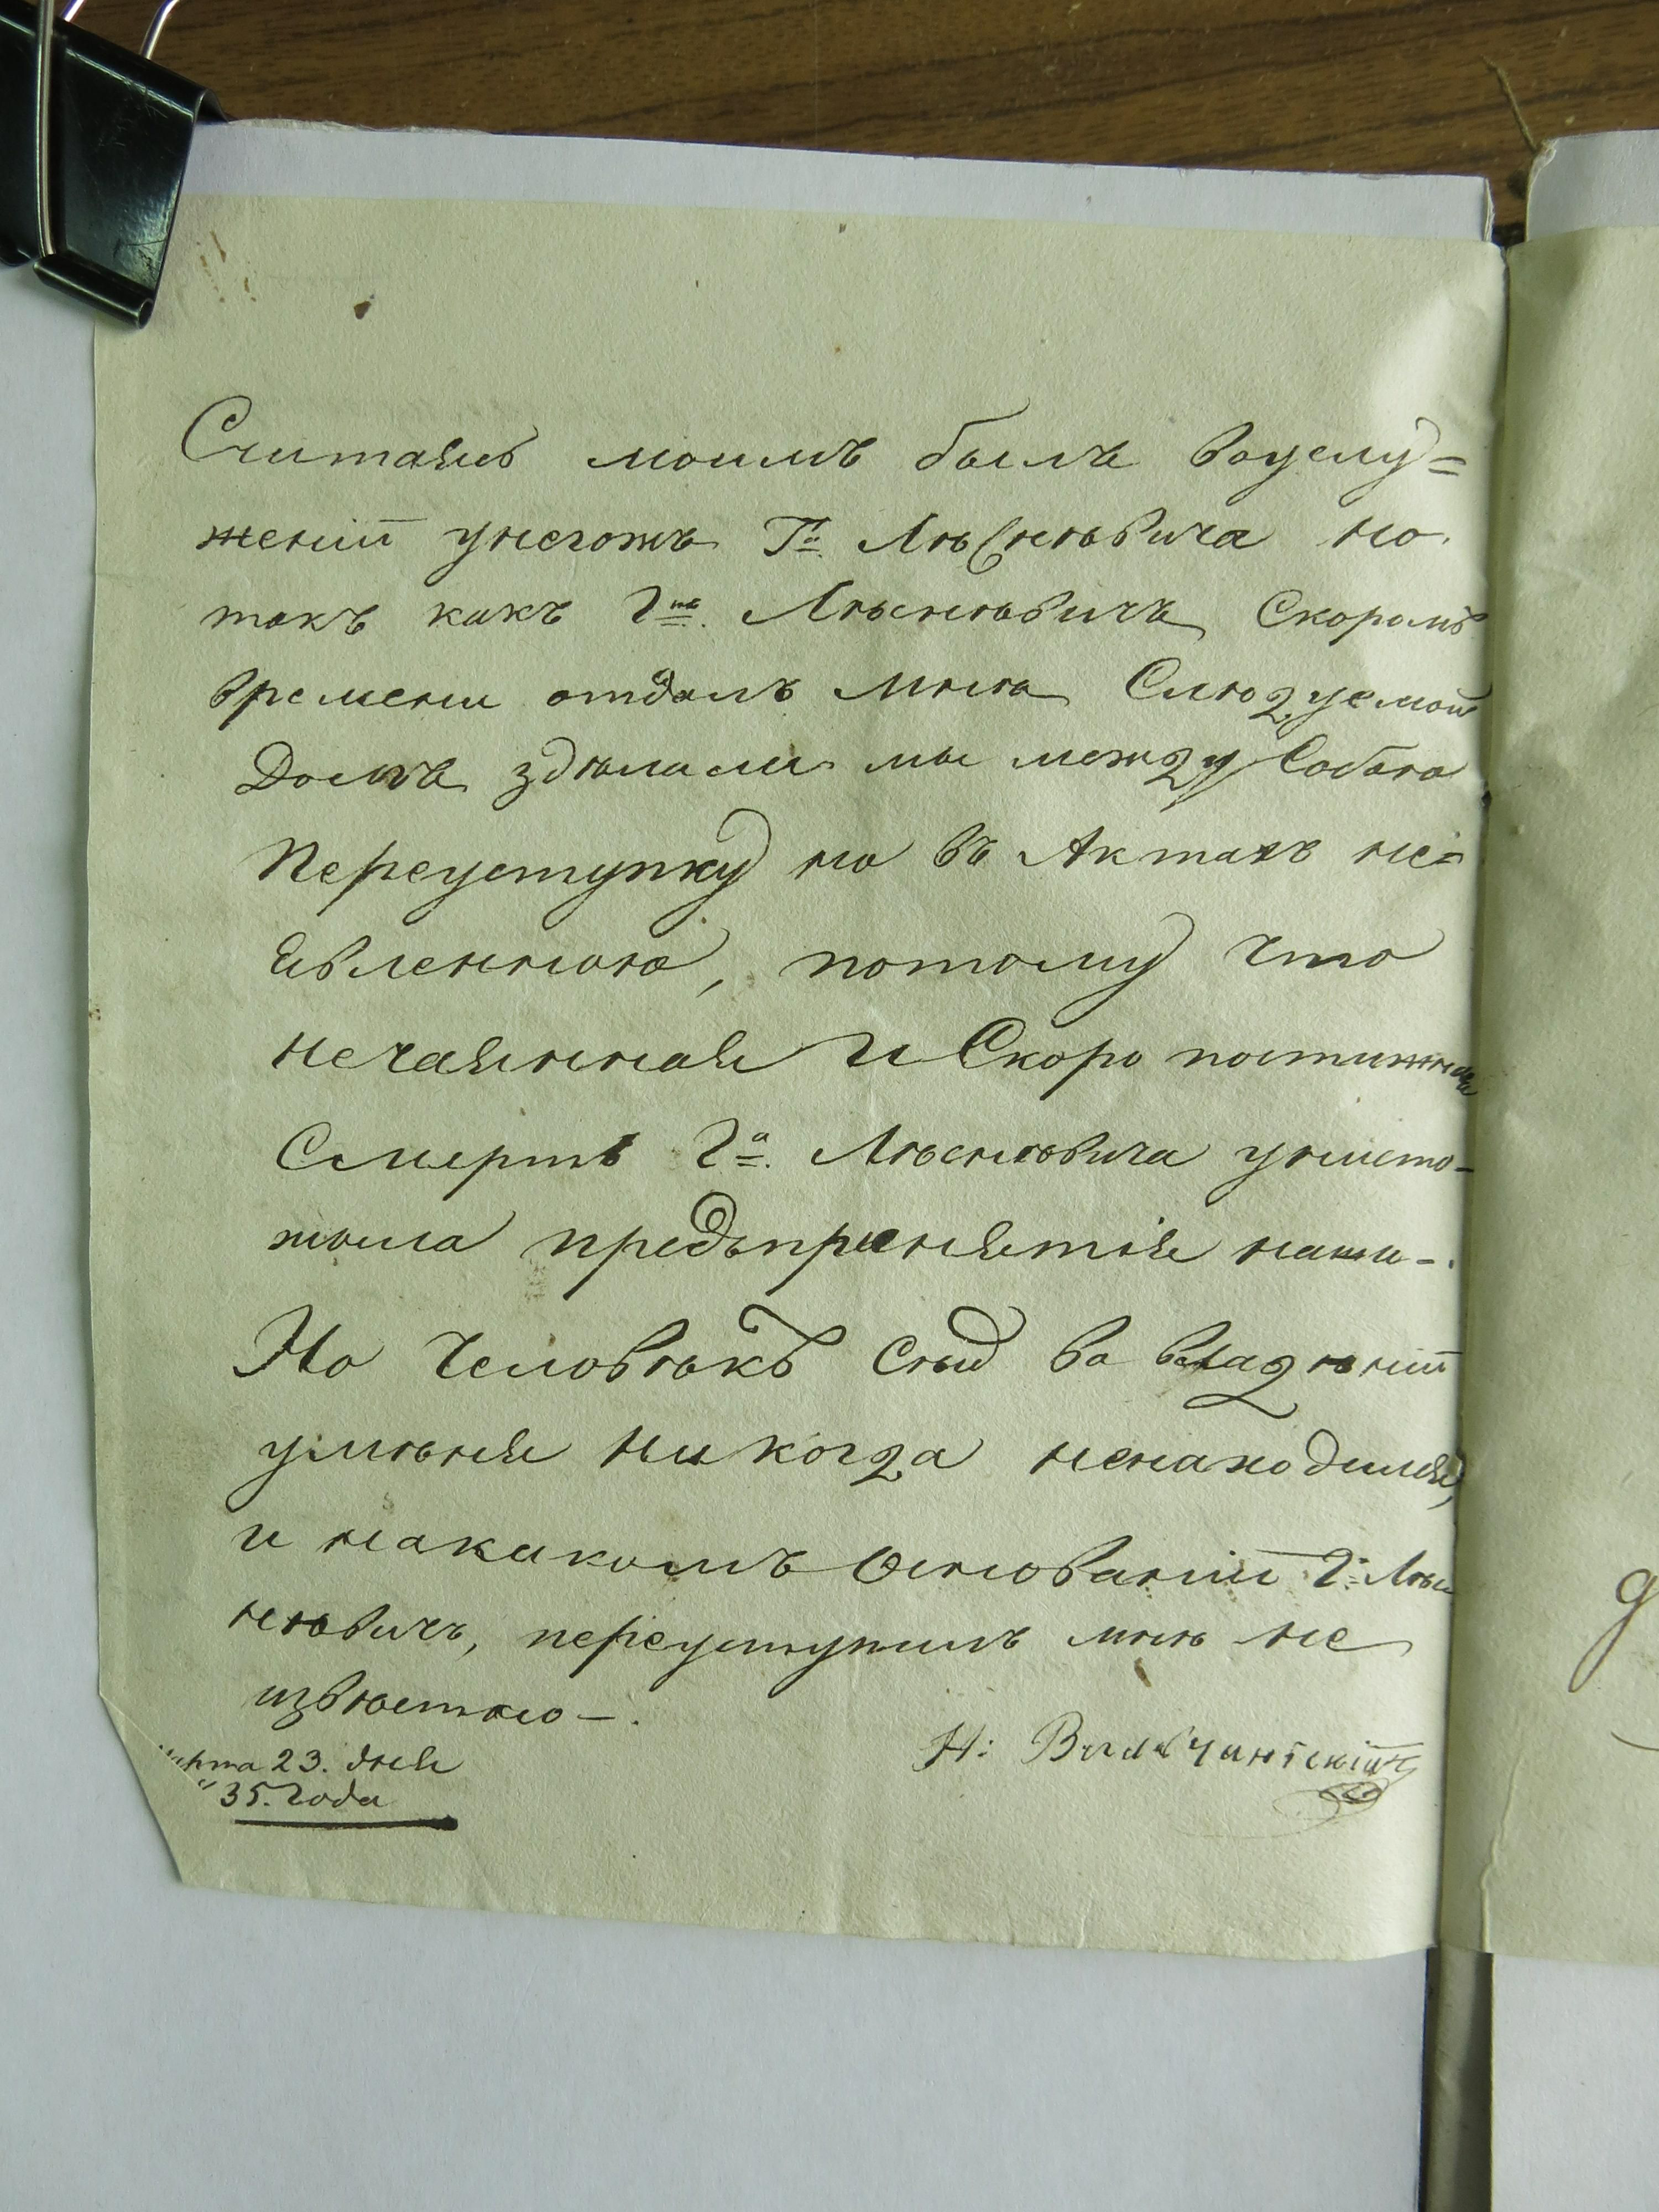 Считаясь моимъ былъ воуслу=
женіи унегожъ Г:а Лѣсневича но
такъ какъ Г:нъ Лѣсневичъ Скоромъ
времени отдалъ мнѣ Следуемой
Домъ здѣлали мы между Собою
Переуступку но въ Актахъ не=
явленною, потому что
нечаянная и Скоро постижная
Смерть Г:а Лѣсневича уничто-
жила предъпріенятія наши-.
Но Человѣкъ Сѣй во владѣніи
у меня никогда ненаходился,
и накакомъ Основаніи Г: Лѣс
невичъ, переуступилъ мнѣ не
извѣстно-.
Марта 23. дня
35. Года
Н: